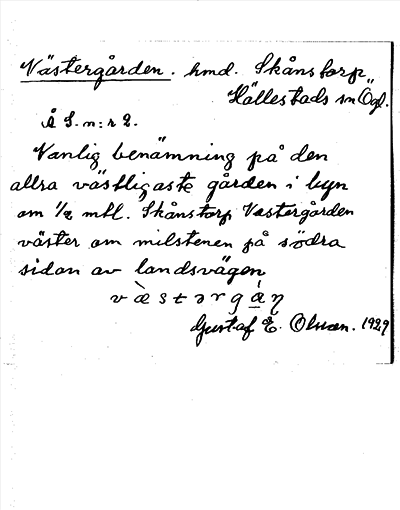 Västergården. hmd. Skånstorp,
Hällestads sn Ögl.
Å S. n:r 2.
Vanlig benämning på den
allra västligaste gården i byn
om 1/2 mtl. Skånstorp Västergården
väster om milstenen på södra
sidan av landsvägen
Gustaf E. Olsson. 1929